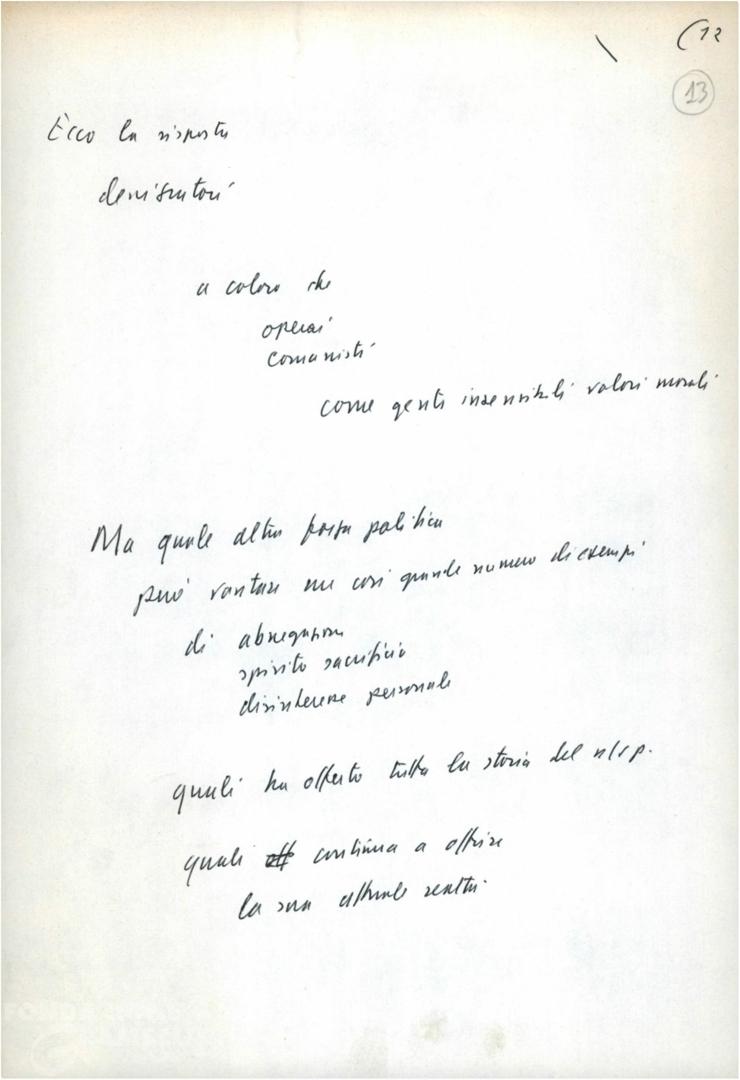 (12
13
Ecco la risposta
denigratori
a coloro che
operai
comunisti
come gente insensibili valori morali
Ma quale altra forza politica
può vantare un così grande numero di esempi
di abnegazione
spirito sacrificio
disinteresse personale
quali ha offerto tutta la storia del n/s p.
quali off continua a offrire
la sua attuale realtà